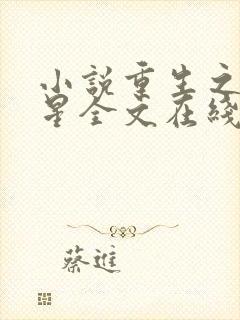 小說重生之
星全文在綫
蔡進